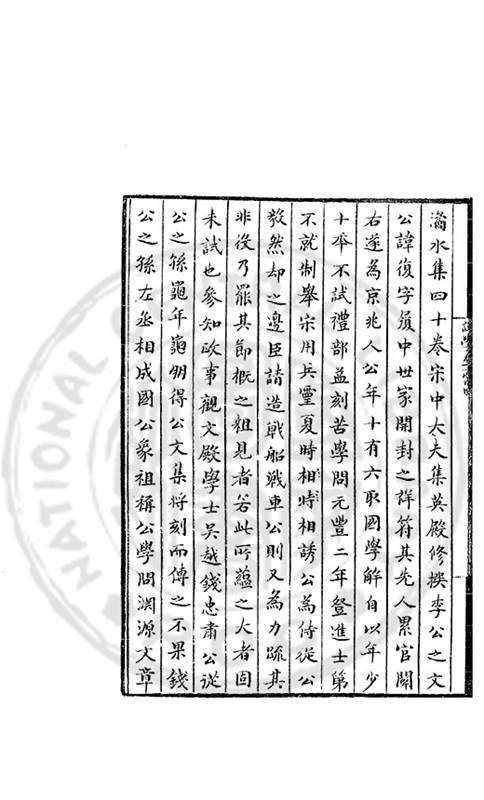 潏水集四十卷宋中大夫集英殿修撰李公之文
公諱復字履中世家開封之祥符其先人累官關
右遂為京兆人公年十有六取國學解自以年少
十年不試禮部益刻苦學問元豐二年登進士第
不就制舉宋用兵靈夏時相時相誘公為侍從公
毅然却之邊臣請造戰船戰車公則又為力疏其
非後乃罷其節概之粗見者若此所蘊之大者固
未試也參知政事觀文殿學士吳越錢忠肅公從
公之孫龜年龜朋得公文集將刻而傳之不果錢
公之孫左丞相成國公象祖稱公學問淵源文章
NATIONAL